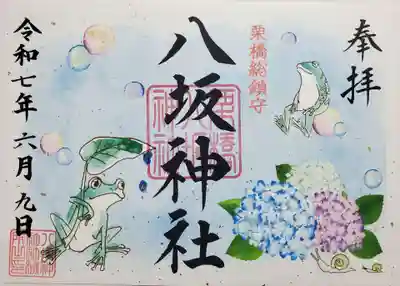 奉拝
栗橋総鎮守
八坂神社
令和七年六月九日